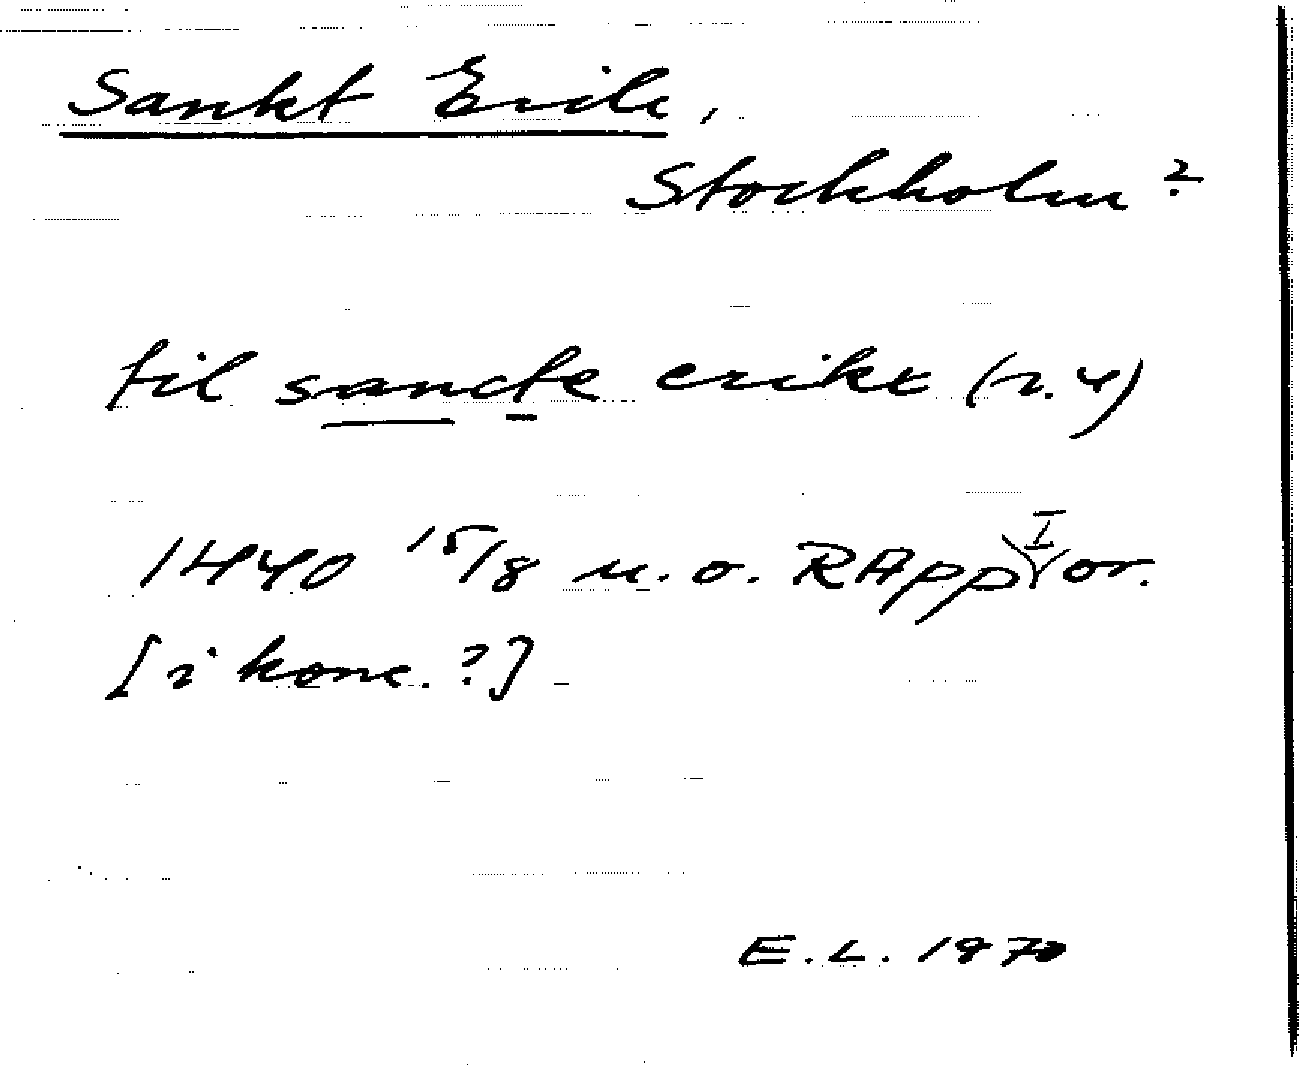 Sankt Erik,
Stockholm?
til sancte erikt (r. 4)
1440 15/8 u. o. RApp I or.
[i konc. ?]
E. L. 1970